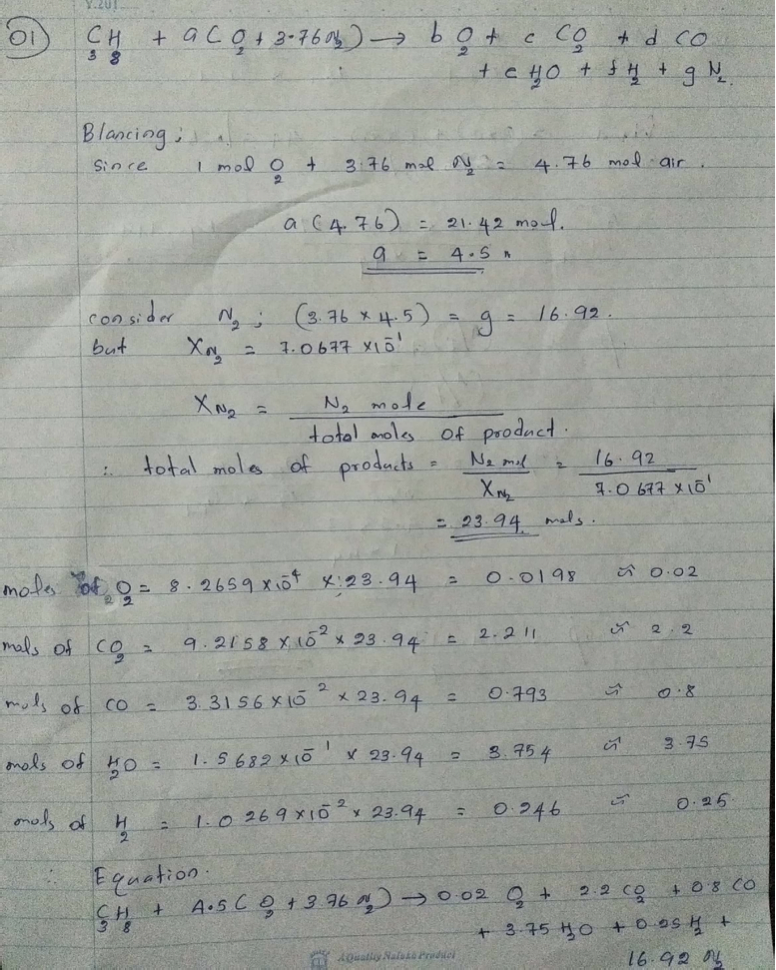 01) C3H8 + a(O2 + 3.76 N2) → b O2 + c CO2 + d CO
+ e H2O + f H2 + g N2.
Blancing ;
since 1 mol O2 + 3.76 mol N2 = 4.76 mol air.
a (4.76) = 21.42 mol.
a = 4.5
consider N2 ; (3.76 × 4.5) = g = 16.92.
but XN2 = 7.0677 × 10⁻¹
XN2 = N2 mole / total moles of product.
∴ total moles of products = N2 mol / XN2 = 16.92 / 7.0677 × 10⁻¹
= 23.94 mols.
moles of O2 = 8.2659 × 10⁻⁴ × 23.94 = 0.0198 ≈ 0.02
mols of CO2 = 9.2158 × 10⁻² × 23.94 = 2.211 ≈ 2.2
mols of CO = 3.3156 × 10⁻² × 23.94 = 0.793 ≈ 0.8
mols of H2O = 1.5682 × 10⁻¹ × 23.94 = 3.754 ≈ 3.75
mols of H2 = 1.0269 × 10⁻² × 23.94 = 0.246 ≈ 0.25
∴ Equation.
C3H8 + 4.5 (O2 + 3.76 N2) → 0.02 O2 + 2.2 CO2 + 0.8 CO
+ 3.75 H2O + 0.25 H2 +
16.92 N2
A Quality Nataraa Product